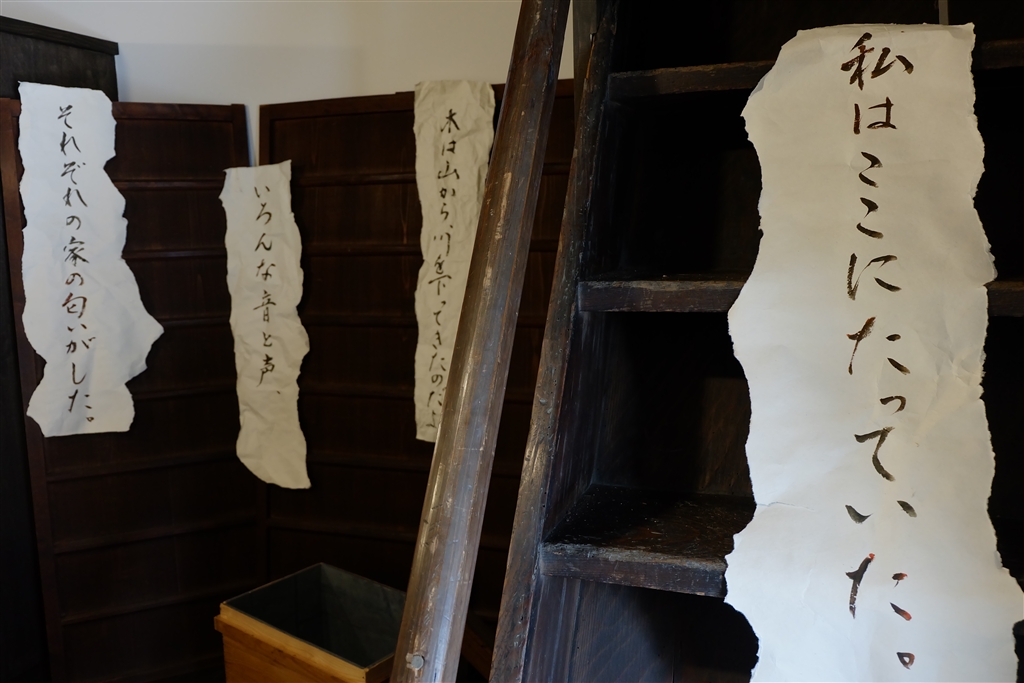 私はここにたっていた。
木は山から、川を下ってきたのだ
いろんな音と声、
それぞれの家の匂いがした。